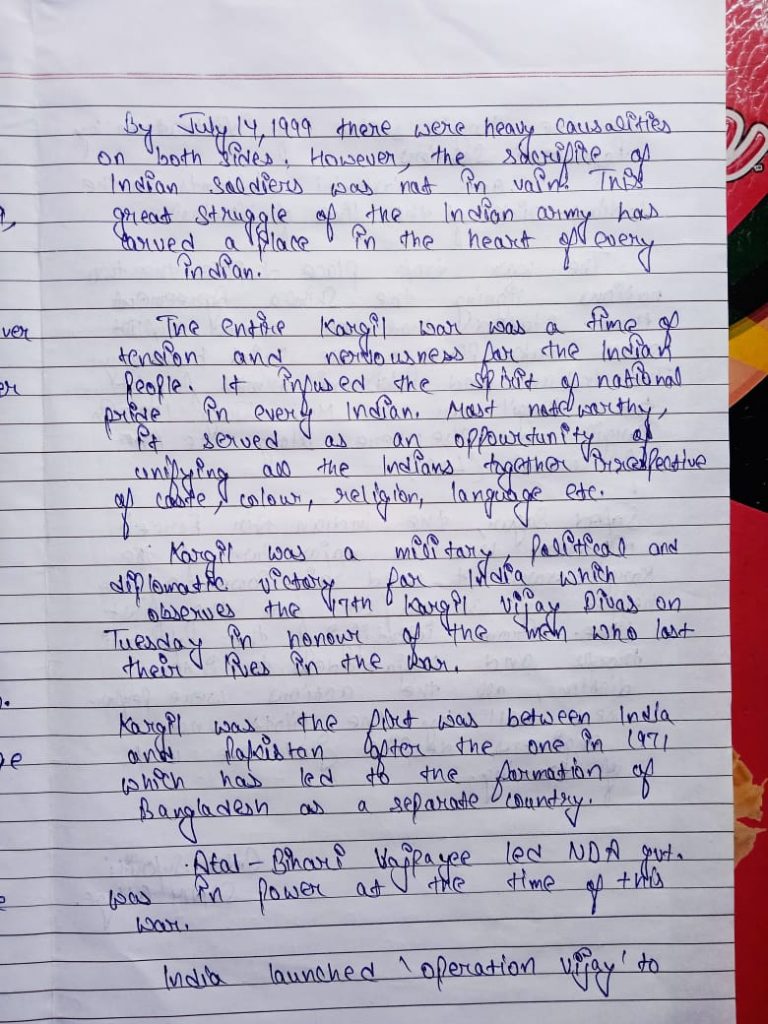 By July 14, 1999 there were heavy causalities
on both sides. However, the sacrifice of
Indian soldiers was not in vain. This
great struggle of the Indian army has
carved a place in the heart of every
indian.
The entire Kargil war was a time of
tension and nerviousness for the Indian
People. It infused the spirit of national
pride in every Indian. Most noteworthy,
it served as an oppourtunity of
unifying all the Indians together irrespective
of caste, colour, religion, language etc.
Kargil was a military, political and
diplomatic victory for India which
observes the 17th Kargil Vijay Divas on
Tuesday in honour of the men who lost
their lives in the war.
Kargil was the first was between India
and Pakistan after the one in 1971
which has led to the formation of
Bangladesh as a separate country.
Atal-Bihari Vajpayee led NDA gvt.
was in power at the time of this
war.
India launched 'operation vijay' to
ver
er
ge